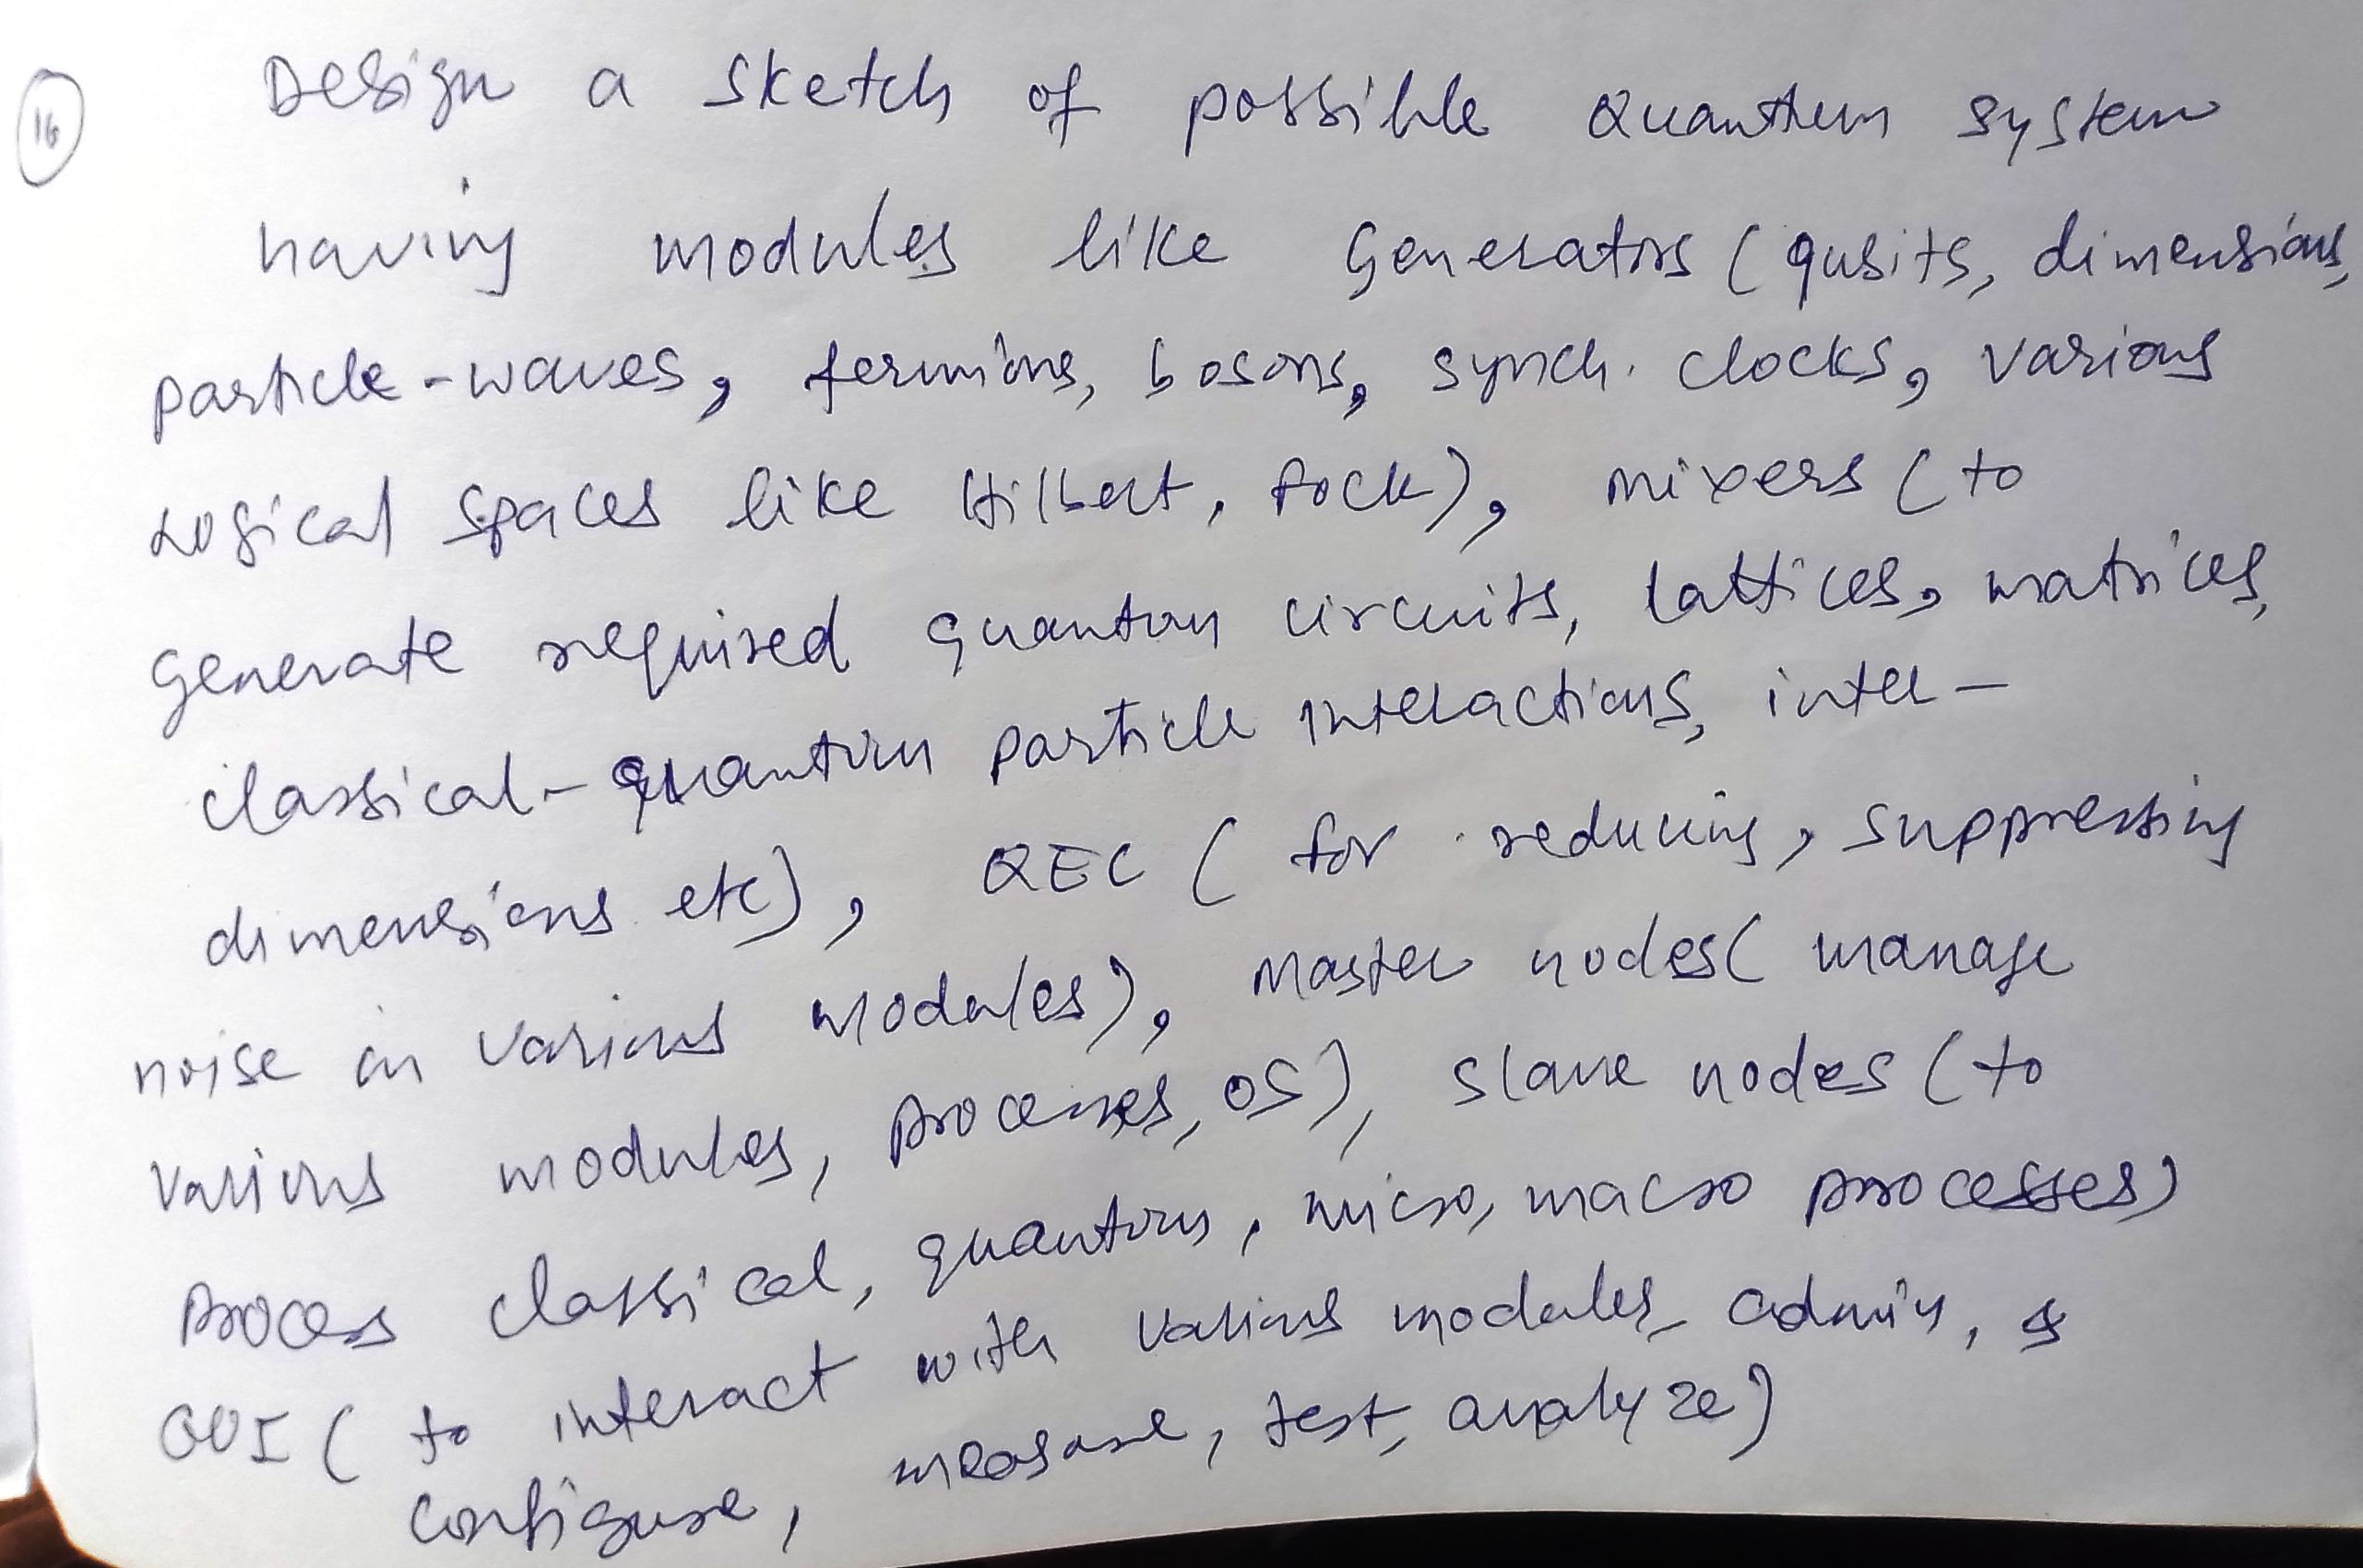 16
Design a sketch of possible Quantum system
having modules like Generators (qusits, dimensions,
particle-waves, fermions, bosons, synch. clocks, various
Logical spaces like Hilbert, fock), mixers (to
generate required quantum circuits, lattices, matrices,
classical-quantum particle interactions, inter-
dimensions etc), QEC (for reducing, suppressing
noise in various modules), master nodes (manage
various modules, processes, OS), slave nodes (to
process classical, quantum, micro, macro processes)
(to interact with various modules - admin,
configure, measure, test, analyze)